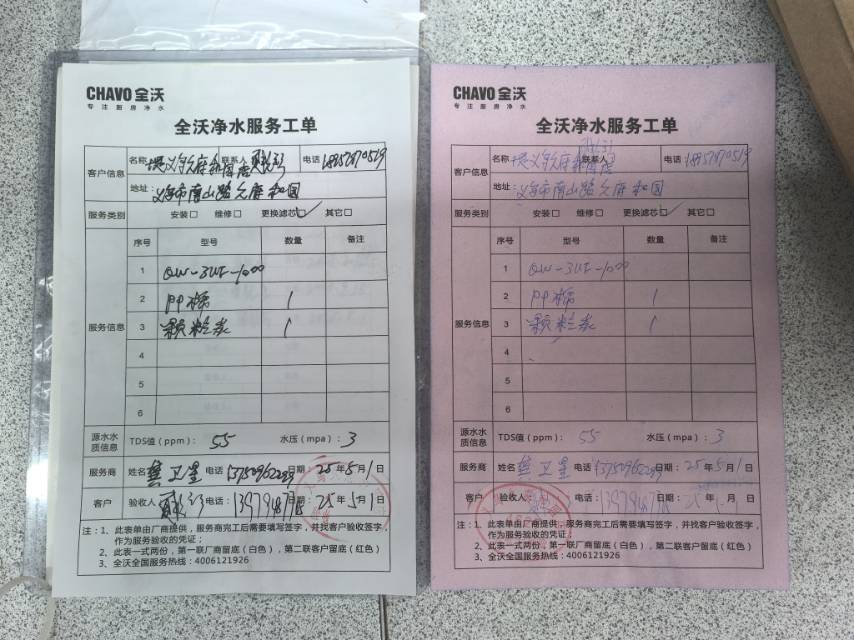 CHAVO 全沃
专注厨房净水
全沃净水服务工单
客户信息
名称 联系人 电话
地址: 义乌市南山路久府和园
服务类别 安装□ 维修□ 更换滤芯□✓ 其它□
服务信息
序号 型号 数量 备注
1 QW-3UF-1000
2 PP棉 1
3 颗粒炭 1
4
5
6
源水水质信息 TDS值(ppm): 55 水压(mpa): 3
服务商 姓名 龚卫星 电话 日期: 25年5月1日
客户 验收人: 电话: 日期: 25年5月1日
注:1、此表单由厂商提供,服务商完工后需要填写签字,并找客户验收签字,
作为服务验收的凭证;
2、此表一式两份,第一联厂商留底(白色),第二联客户留底(红色)
3、全沃全国服务热线:4006121926
CHAVO 全沃
专注厨房净水
全沃净水服务工单
客户信息
名称 联系人 电话
地址: 义乌市南山路久府和园
服务类别 安装□ 维修□ 更换滤芯□✓ 其它□
服务信息
序号 型号 数量 备注
1 QW-3UF-1000
2 PP棉 1
3 颗粒炭 1
4
5
6
源水水质信息 TDS值(ppm): 55 水压(mpa): 3
服务商 姓名 龚卫星 电话 日期: 25年5月1日
客户 验收人: 电话: 日期: 年 月 日
注:1、此表单由厂商提供,服务商完工后需要填写签字,并找客户验收签字,
作为服务验收的凭证;
2、此表一式两份,第一联厂商留底(白色),第二联客户留底(红色)
3、全沃全国服务热线:4006121926